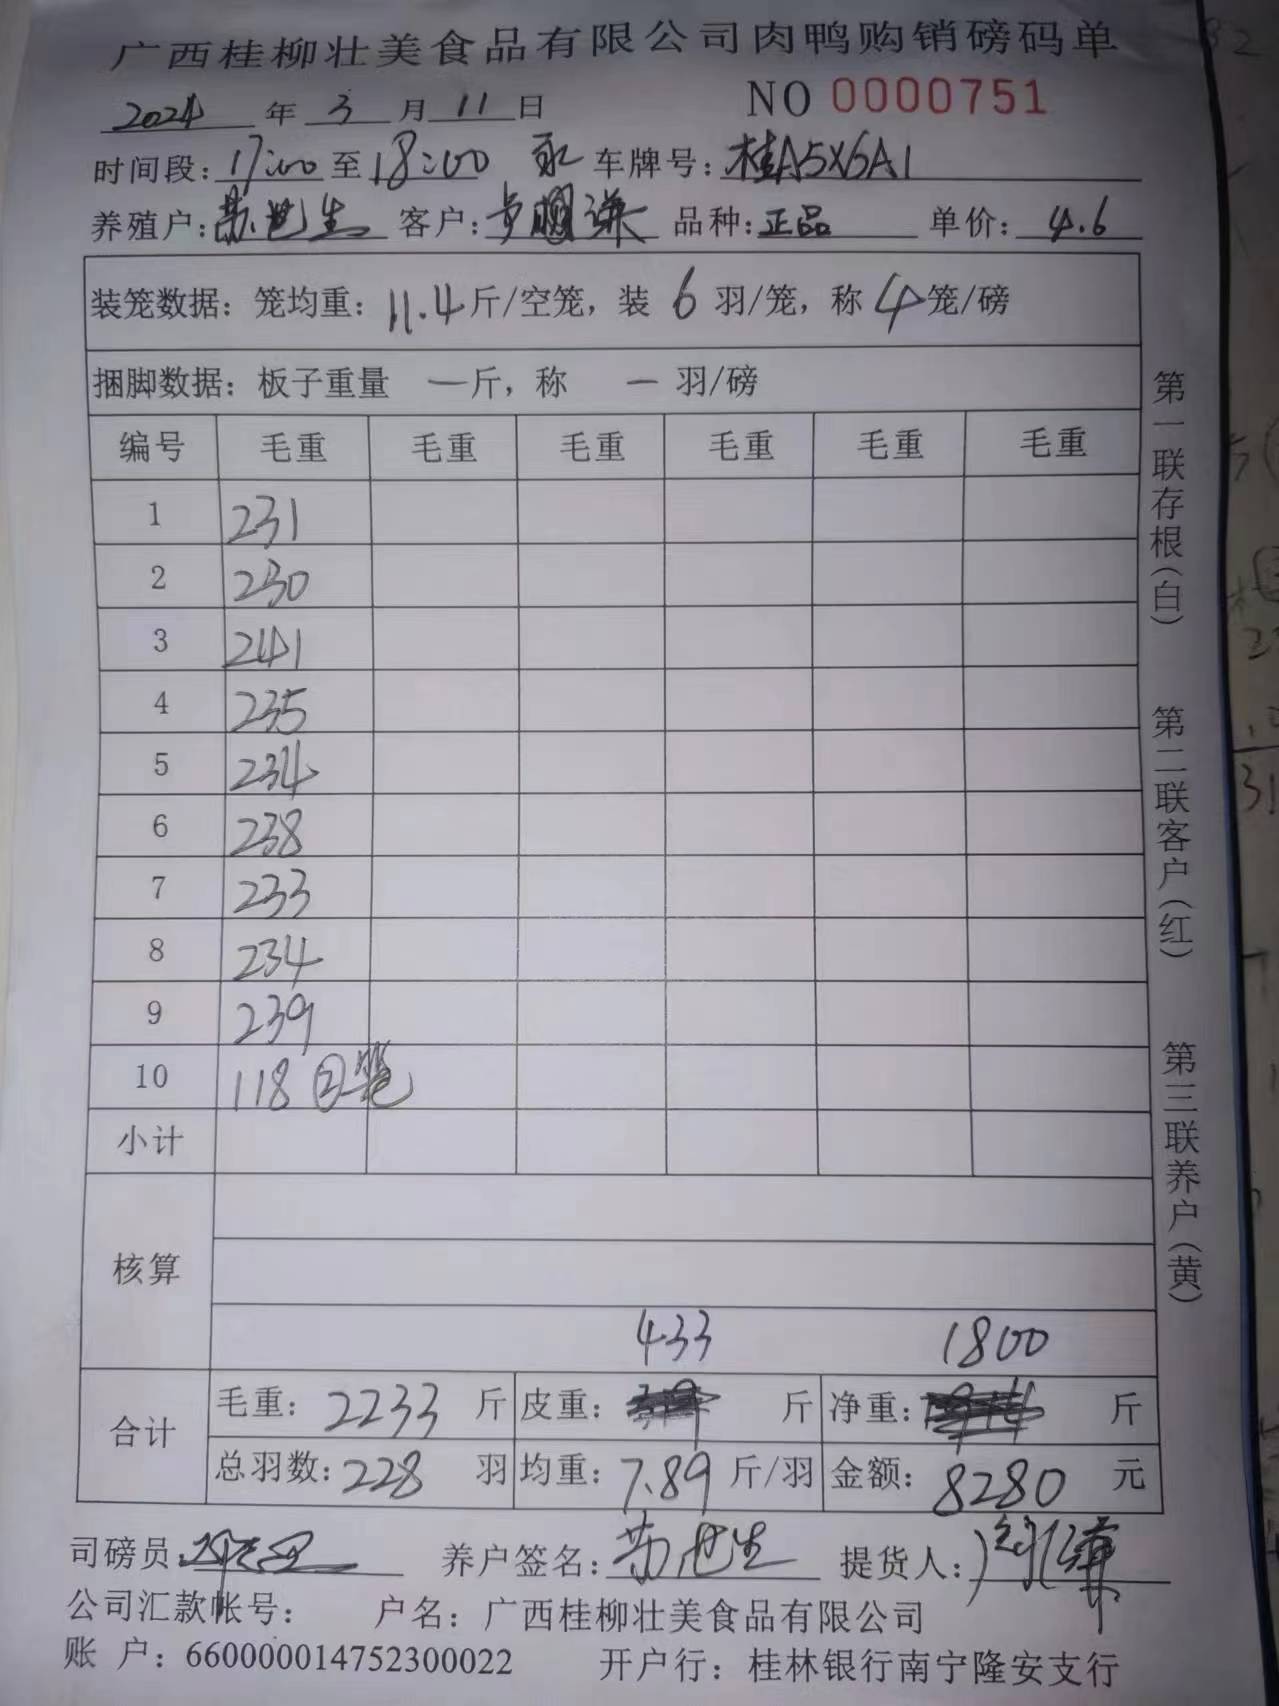 广西桂柳壮美食品有限公司肉鸭购销磅码单
2024 年 3 月 11 日 NO 0000751
时间段: 17:00 至 18:00 车牌号: 桂A5X6A1
养殖户: 苏世生 客户: 品种: 正品 单价: 4.6
装笼数据: 笼均重: 11.4 斤/空笼, 装 6 羽/笼, 称 4 笼/磅
捆脚数据: 板子重量 一 斤, 称 一 羽/磅
编号 毛重 毛重 毛重 毛重 毛重 毛重
1 231
2 230
3 241
4 235
5 234
6 238
7 233
8 234
9 239
10 118 ②笼
小计
核算
433 1800
合计
毛重: 2233 斤 皮重: 斤 净重: 斤
总羽数: 228 羽 均重: 7.89 斤/羽 金额: 8280 元
司磅员: 养户签名: 苏世生 提货人:
公司汇款帐号: 户名: 广西桂柳壮美食品有限公司
账 户: 660000014752300022 开户行: 桂林银行南宁隆安支行
第一联存根(白) 第二联客户(红) 第三联养户(黄)